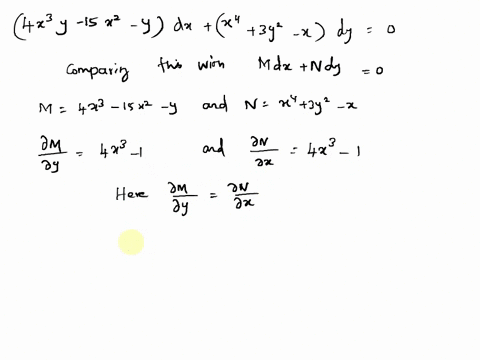 (4x³y -15x² -y) dx + (x⁴ +3y² -x) dy = 0
Comparing this with Mdx + Ndy = 0
M = 4x³ -15x² -y and N = x⁴ +3y² -x
∂M/∂y = 4x³ -1 and ∂N/∂x = 4x³ - 1
Here ∂M/∂y = ∂N/∂x